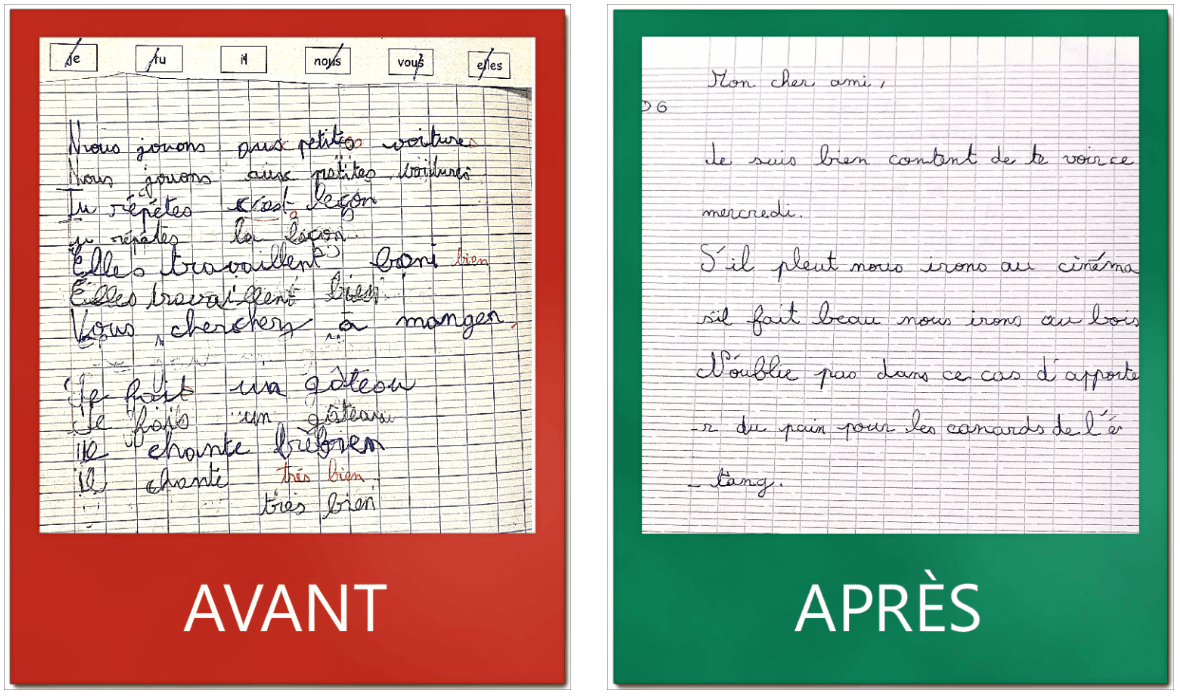 Je
tu
il
nous
vous
elles
Nous jouons aux petites voitures
Nous jouons aux petites voitures
Tu répètes c'est leçon
tu répètes la leçon.
Elles travaillent bani bien
Elles travaillent bien
Vous cherchez à manger.
Je fait un gâteau
Je fais un gâteau
il chante brebren
il chante très bien
très bien
AVANT
Mon cher ami,
D6
Je suis bien content de te voir ce
mercredi.
S'il pleut nous irons au cinéma
s'il fait beau nous irons au bois
N'oublie pas dans ce cas d'apporte
-r du pain pour les canards de l'é
-tang.
APRÈS